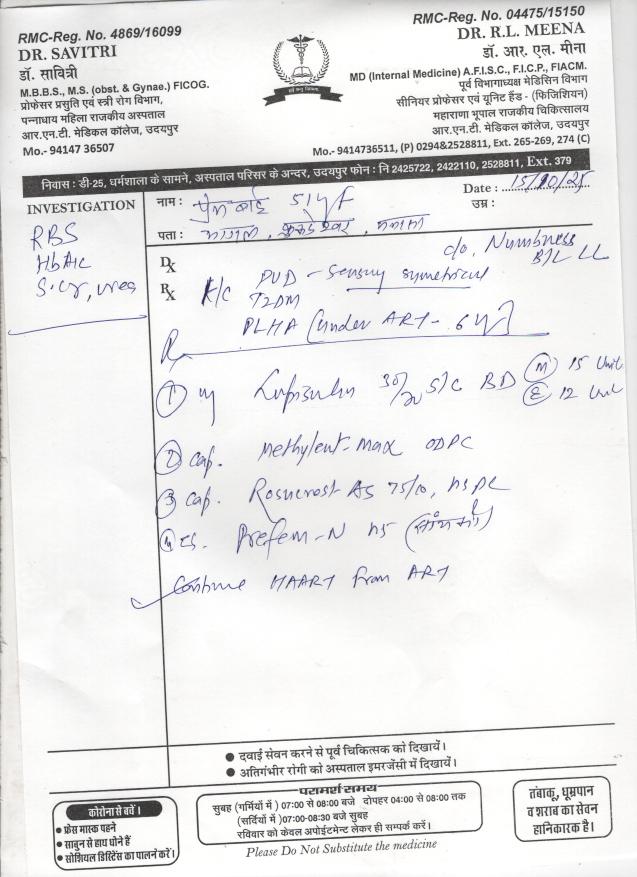 RMC-Reg. No. 4869/16099
DR. SAVITRI
डॉ. सावित्री
M.B.B.S., M.S. (obst. & Gynae.) FICOG.
प्रोफेसर प्रसुति एवं स्त्री रोग विभाग,
पन्नाधाय महिला राजकीय अस्पताल
आर.एन.टी. मेडिकल कॉलेज, उदयपुर
Mo.- 94147 36507
RMC-Reg. No. 04475/15150
DR. R.L. MEENA
डॉ. आर. एल. मीना
MD (Internal Medicine) A.F.I.S.C., F.I.C.P., FIACM.
पूर्व विभागाध्यक्ष मेडिसिन विभाग
सीनियर प्रोफेसर एवं यूनिट हैड - (फिजिशियन)
महाराणा भूपाल राजकीय चिकित्सालय
आर.एन.टी. मेडिकल कॉलेज, उदयपुर
Mo.- 9414736511, (P) 0294&2528811, Ext. 265-269, 274 (C)
निवास : डी-25, धर्मशाला के सामने, अस्पताल परिसर के अन्दर, उदयपुर फोन : नि 2425722, 2422110, 2528811, Ext. 379
INVESTIGATION
RBS
HbA1c
S.Cr, urea
नाम : प्रेम बाई 51 y/F
Date : 15/10/25
उम्र :
पता :
c/o, Numbness
B/L LL
Dx
Rx K/C PVD - Sensory symetrical
T2DM
PLHA (under ART - 6 y)
Rx
① Inj 30/70 S/C BD (M) 15 Unit
(E) 12 Unit
② Cap. Methylent-Max ODPC
③ Cap. Rosucrost AS 75/10, HSPC
④ Prefem-N HS
Continue HAART from ART
● दवाई सेवन करने से पूर्व चिकित्सक को दिखायें।
● अतिगंभीर रोगी को अस्पताल इमरजेंसी में दिखायें।
कोरोना से बचें ।
● फ्रेस मास्क पहने
● साबुन से हाथ धोने हैं
● सोशियल डिस्टेंस का पालन करें।
परामर्श समय
सुबह (गर्मियों में ) 07:00 से 08:00 बजे दोपहर 04:00 से 08:00 तक
(सर्दियों में) 07:00-08:30 बजे सुबह
रविवार को केवल अपोईटमेन्ट लेकर ही सम्पर्क करें।
Please Do Not Substitute the medicine
तंबाकू, धूम्रपान
व शराब का सेवन
हानिकारक है।